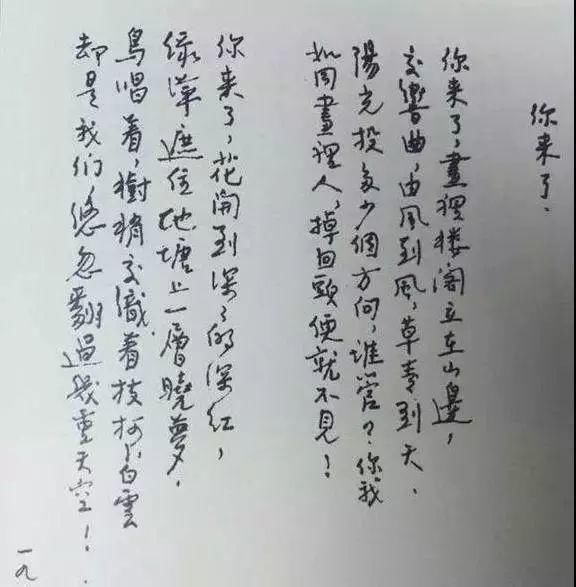 你来了.
你来了,畫裡楼阁立在山邊,
交響曲,由風到風,草青到天.
陽光投多少個方向,誰管?你,我
如同畫裡人,掉回頭便就不見!
你来了,花開到深〻的深红,
绿萍遮住池塘上一層曉夢,
鳥唱着,樹梢交織着枝柯,白雲
却是我们,悠忽翻過幾重天空!
一九